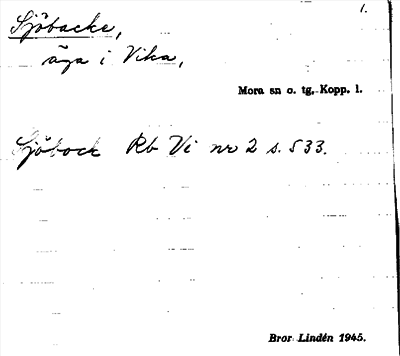 1.
Sjöbacke,
äga i Vika,
Mora sn o. tg, Kopp. l.
Sjöback Rb Vi nr 2 s. 533.
Bror Lindén 1945.